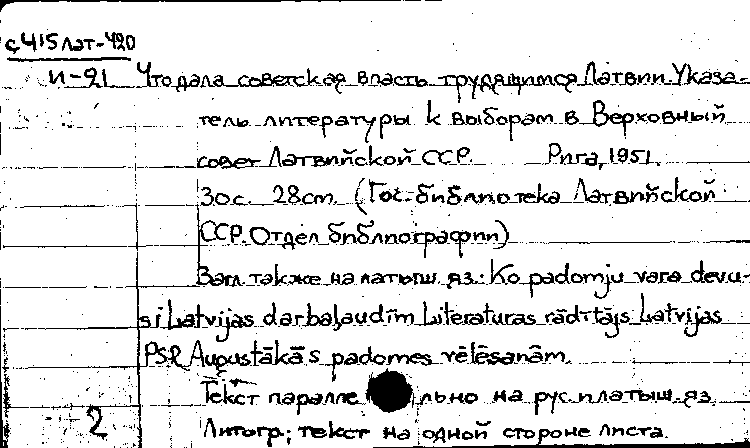 с415лат-420
И-21 Что дала советская власть трудящимся Латвии. Указа-
тель литературы к выборам в Верховный
совет Латвийской ССР. Рига, 1951.
30с. 28cm. (Гос. библиотека Латвийской
ССР. Отдел библиографии)
Загл. также на латыш. яз.: Ko padomju vara devu-
si Latvijas darbaļaudīm Literaturas rādītājs Latvijas
PSR Augustākās padomes vēlēsanām.
Текст паралле льно на рус. и латыш. яз.
Литогр; текст на одной стороне листа.
2